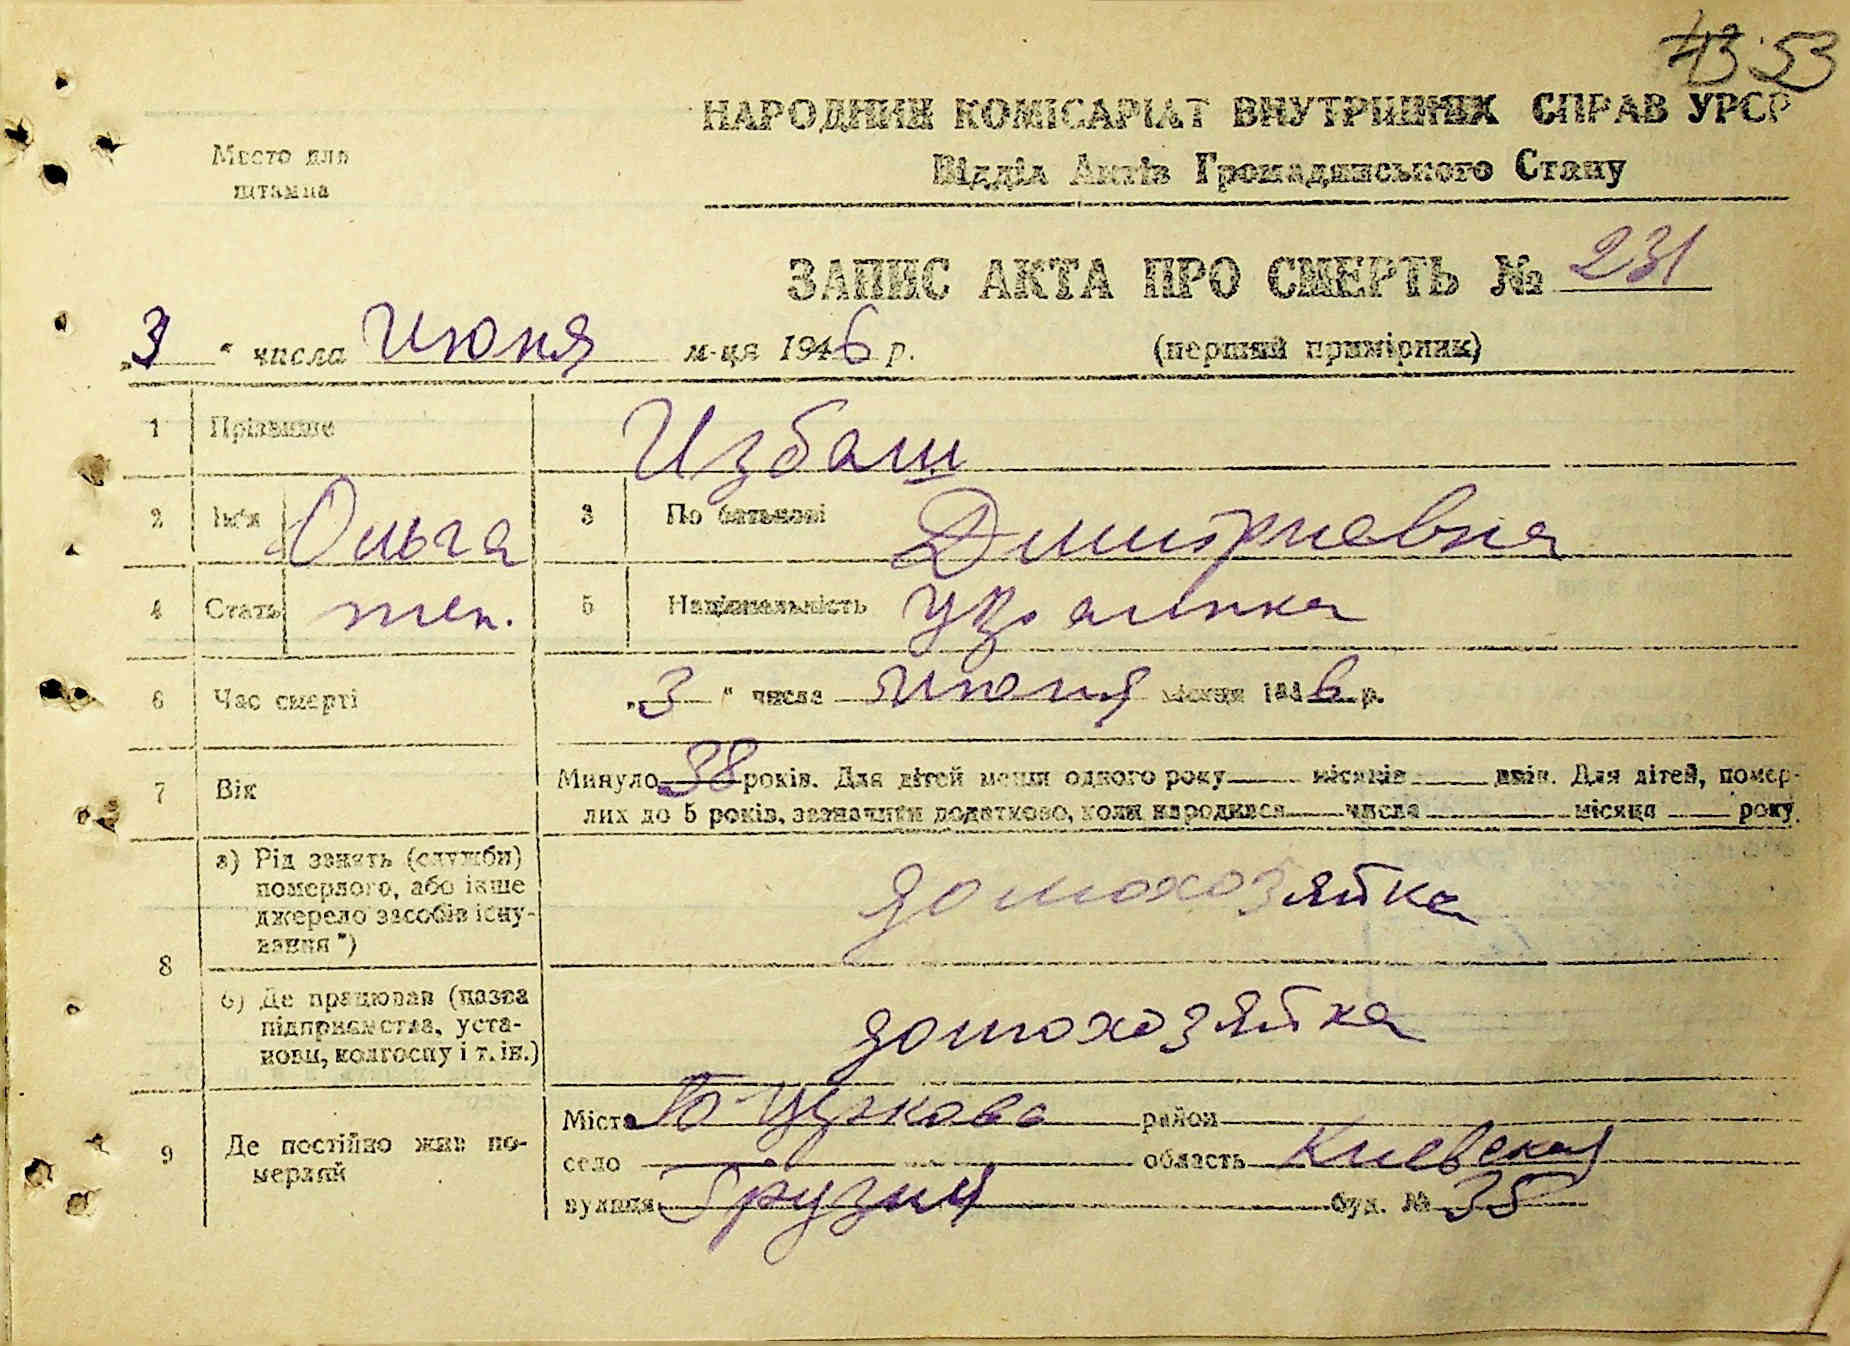 53
НАРОДНИЙ КОМІСАРІАТ ВНУТРІШНІХ СПРАВ УРСР
Відділ Актів Громадянського Стану
Место для
штампа
ЗАПИС АКТА ПРО СМЕРТЬ № 231
„3 " числа Июня м-ця 1946 р. (перший примірник)
1 Прізвище Избаш
2 Ім'я Ольга 3 По батькові Дмитриевна
4 Стать жен. 5 Національність украинка
6 Час смерті „3 " числа июня місяця 1946 р.
7 Вік Минуло 38 років. Для дітей менш одного року місяців днів. Для дітей, помер-
лих до 5 років, зазначити додатково, коли народився числа місяця року.
8 а) Рід занять (служби)
померлого, або інше
джерело засобів існу-
вання *) домохозяйка
б) Де працював (назва
підприємства, уста-
нови, колгоспу і т. ін.) домохозяйка
9 Де постійно жив по-
мерлий
Міста Б Церковь район
село область Киевская
вулиця буд. № 35